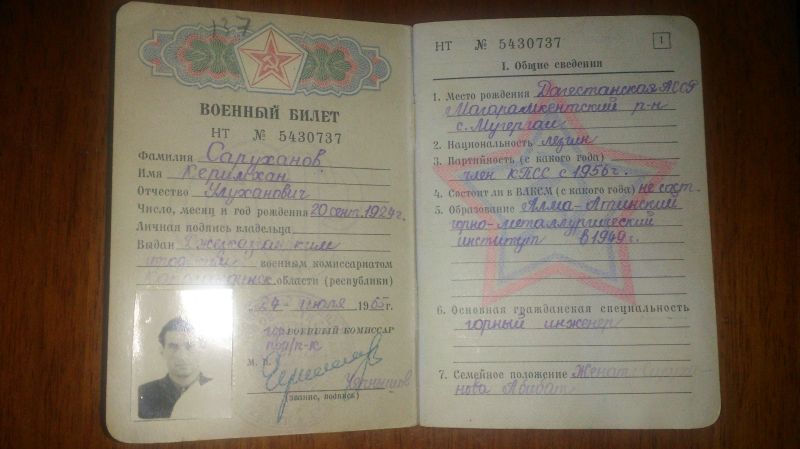 127
ВОЕННЫЙ БИЛЕТ
НТ № 5430737
Фамилия Саруханов
Имя Керимхан
Отчество Улуханович
Число, месяц и год рождения 20 сент. 1924 г.
Личная подпись владельца
Выдан Джезказганским
военным комиссариатом
области (республики)
24 июля 1965 г.
ВОЕННЫЙ КОМИССАР
п/п-к
М. П.
Чернышов
(звание, подпись)
НТ № 5430737
1
I. Общие сведения
1. Место рождения Дагестанская АССР
Магарамкентский р-н
с. Мугерган
2. Национальность лезгин
3. Партийность (с какого года)
член КПСС с 1956 г.
4. Состоит ли в ВЛКСМ (с какого года) не сост.
5. Образование Алма-Атинский
горно-металлургический
институт в 1949 г.
6. Основная гражданская специальность
горный инженер
7. Семейное положение Женат